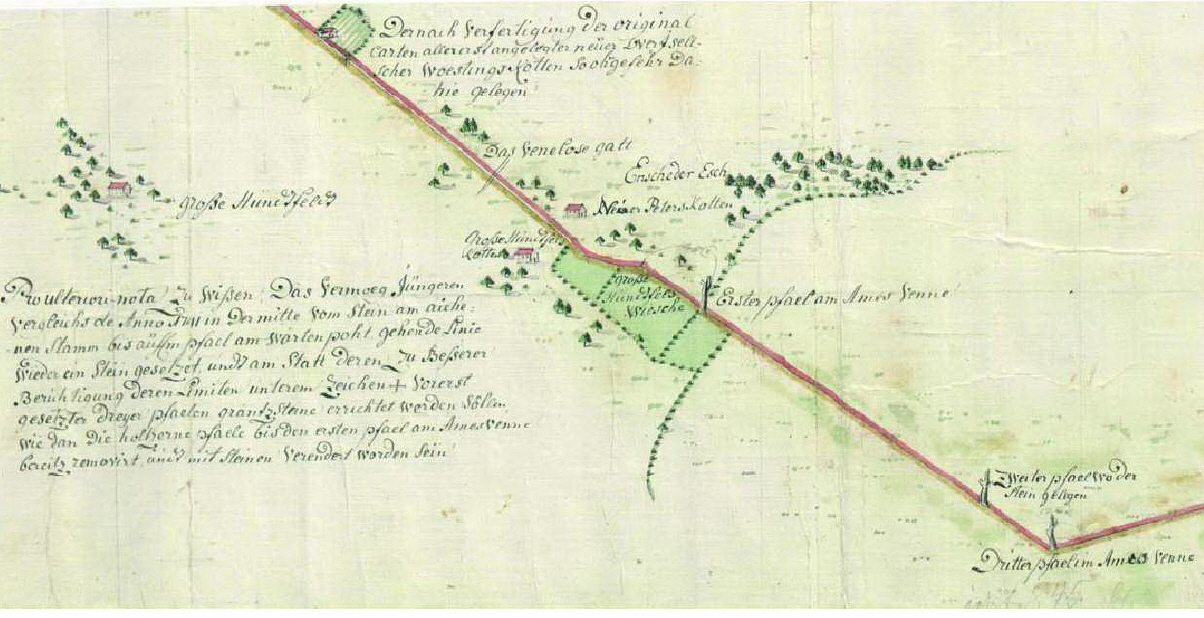 Dernach Verfertigung der original
Carten allererst angelegter neüer overÿsell-
scher Woestings Kotten So ohgefehr Da-
hie gelegen
Das Venelose gatt
Enscheder Esch
große Hündtfeld
Peters Kotten
große Hündtfelds
Kotten
große
Hündtfelds
Wiesche
Erster pfael am Ames Venne
nota! Zu Wißen, Das Vermoeg Jüngeren
Vergleichs de Anno 1741 in Der mitte Vom Stein am aiche-
nen Stamm bis auf pfael am Warten pohl gehende Linie
Wieder ein Stein gesetzet, undt am Statt deren Zu Beßerer
Berichtigung deren Limiten unterem Zeichen + Vorerst
gesetzter Dreyer pfaelen grantz Steine errichtet worden Söllen,
wie dan Die holtzerne pfaele bis den ersten pfael am Ames Venne
bereitz removirt, undt mit Steinen Verendert worden Sein
Zweiter pfael wo der
Stein gelegen
Dritter pfael im Ames Venne